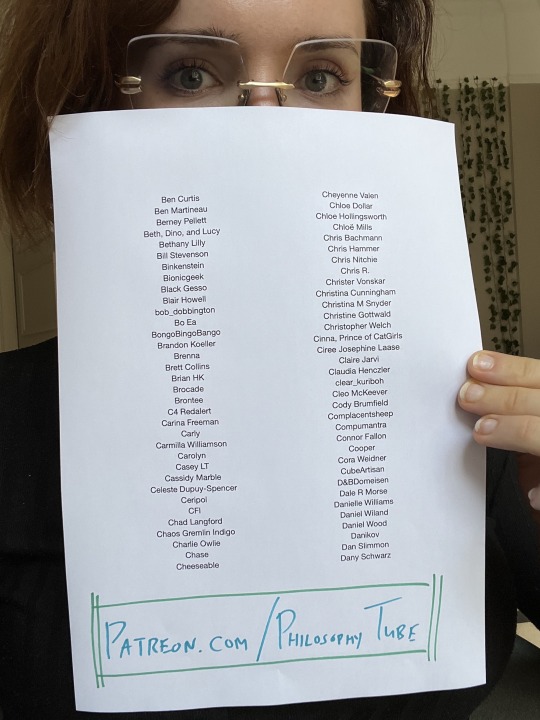 Ben Curtis
Ben Martineau
Berney Pellett
Beth, Dino, and Lucy
Bethany Lilly
Bill Stevenson
Binkenstein
Bionicgeek
Black Gesso
Blair Howell
bob_dobbington
Bo Ea
BongoBingoBango
Brandon Koeller
Brenna
Brett Collins
Brian HK
Brocade
Brontee
C4 Redalert
Carina Freeman
Carly
Carmilla Williamson
Carolyn
Casey LT
Cassidy Marble
Celeste Dupuy-Spencer
Ceripol
CFI
Chad Langford
Chaos Gremlin Indigo
Charlie Owlie
Chase
Cheeseable
Cheyenne Valen
Chloe Dollar
Chloe Hollingsworth
Chloë Mills
Chris Bachmann
Chris Hammer
Chris Nitchie
Chris R.
Christer Vonskar
Christina Cunningham
Christina M Snyder
Christine Gottwald
Christopher Welch
Cinna, Prince of CatGirls
Ciree Josephine Laase
Claire Jarvi
Claudia Henczler
clear_kuriboh
Cleo McKeever
Cody Brumfield
Complacentsheep
Compumantra
Connor Fallon
Cooper
Cora Weidner
CubeArtisan
D&BDomeisen
Dale R Morse
Danielle Williams
Daniel Wiland
Daniel Wood
Danikov
Dan Slimmon
Dany Schwarz
PATREON.COM/PHILOSOPHY TUBE